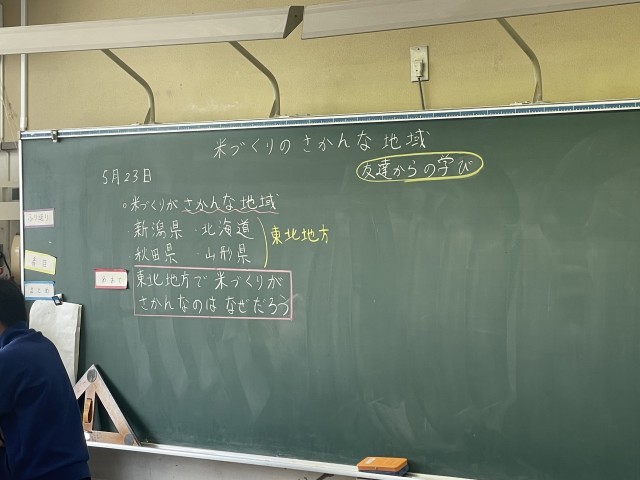 米づくりのさかんな地域
友達からの学び
5月23日
○米づくりがさかんな地域
・新潟県 ・北海道
・秋田県 ・山形県
東北地方
めあて
東北地方で米づくりが
さかんなのはなぜだろう
まとめ